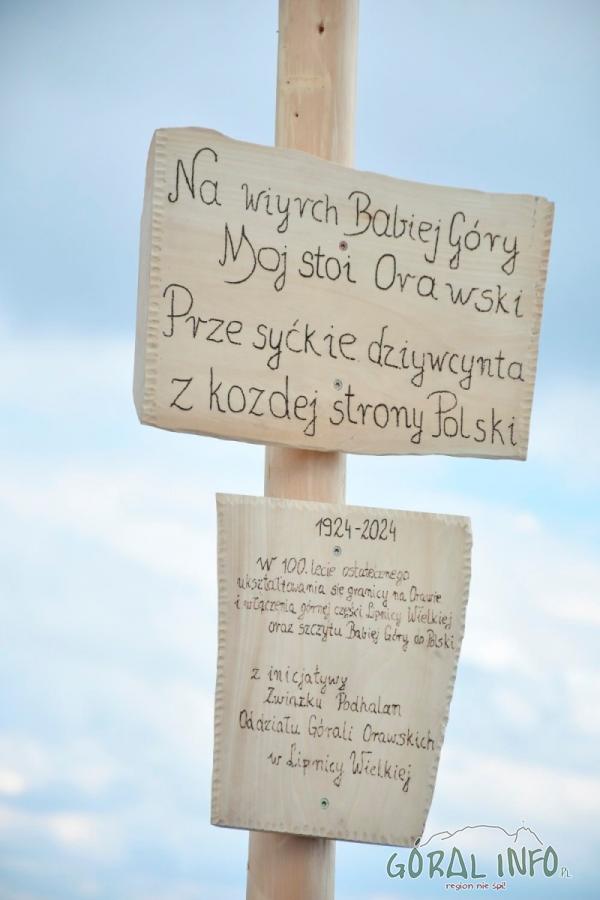 Na wiyrch Babiej Góry
Moj stoi Orawski
Prze syćkie dziywcynta
z kozdej strony Polski
1924-2024
W 100. lecie ostatecznego
ukształtowania się granicy na Orawie
i włączenia górnej części Lipnicy Wielkiej
oraz szczytu Babiej Góry do Polski
z inicjatywy
Związku Podhalan
Oddziału Górali Orawskich
w Lipnicy Wielkiej
GÓRAL INFO.PL
region nie śpi!